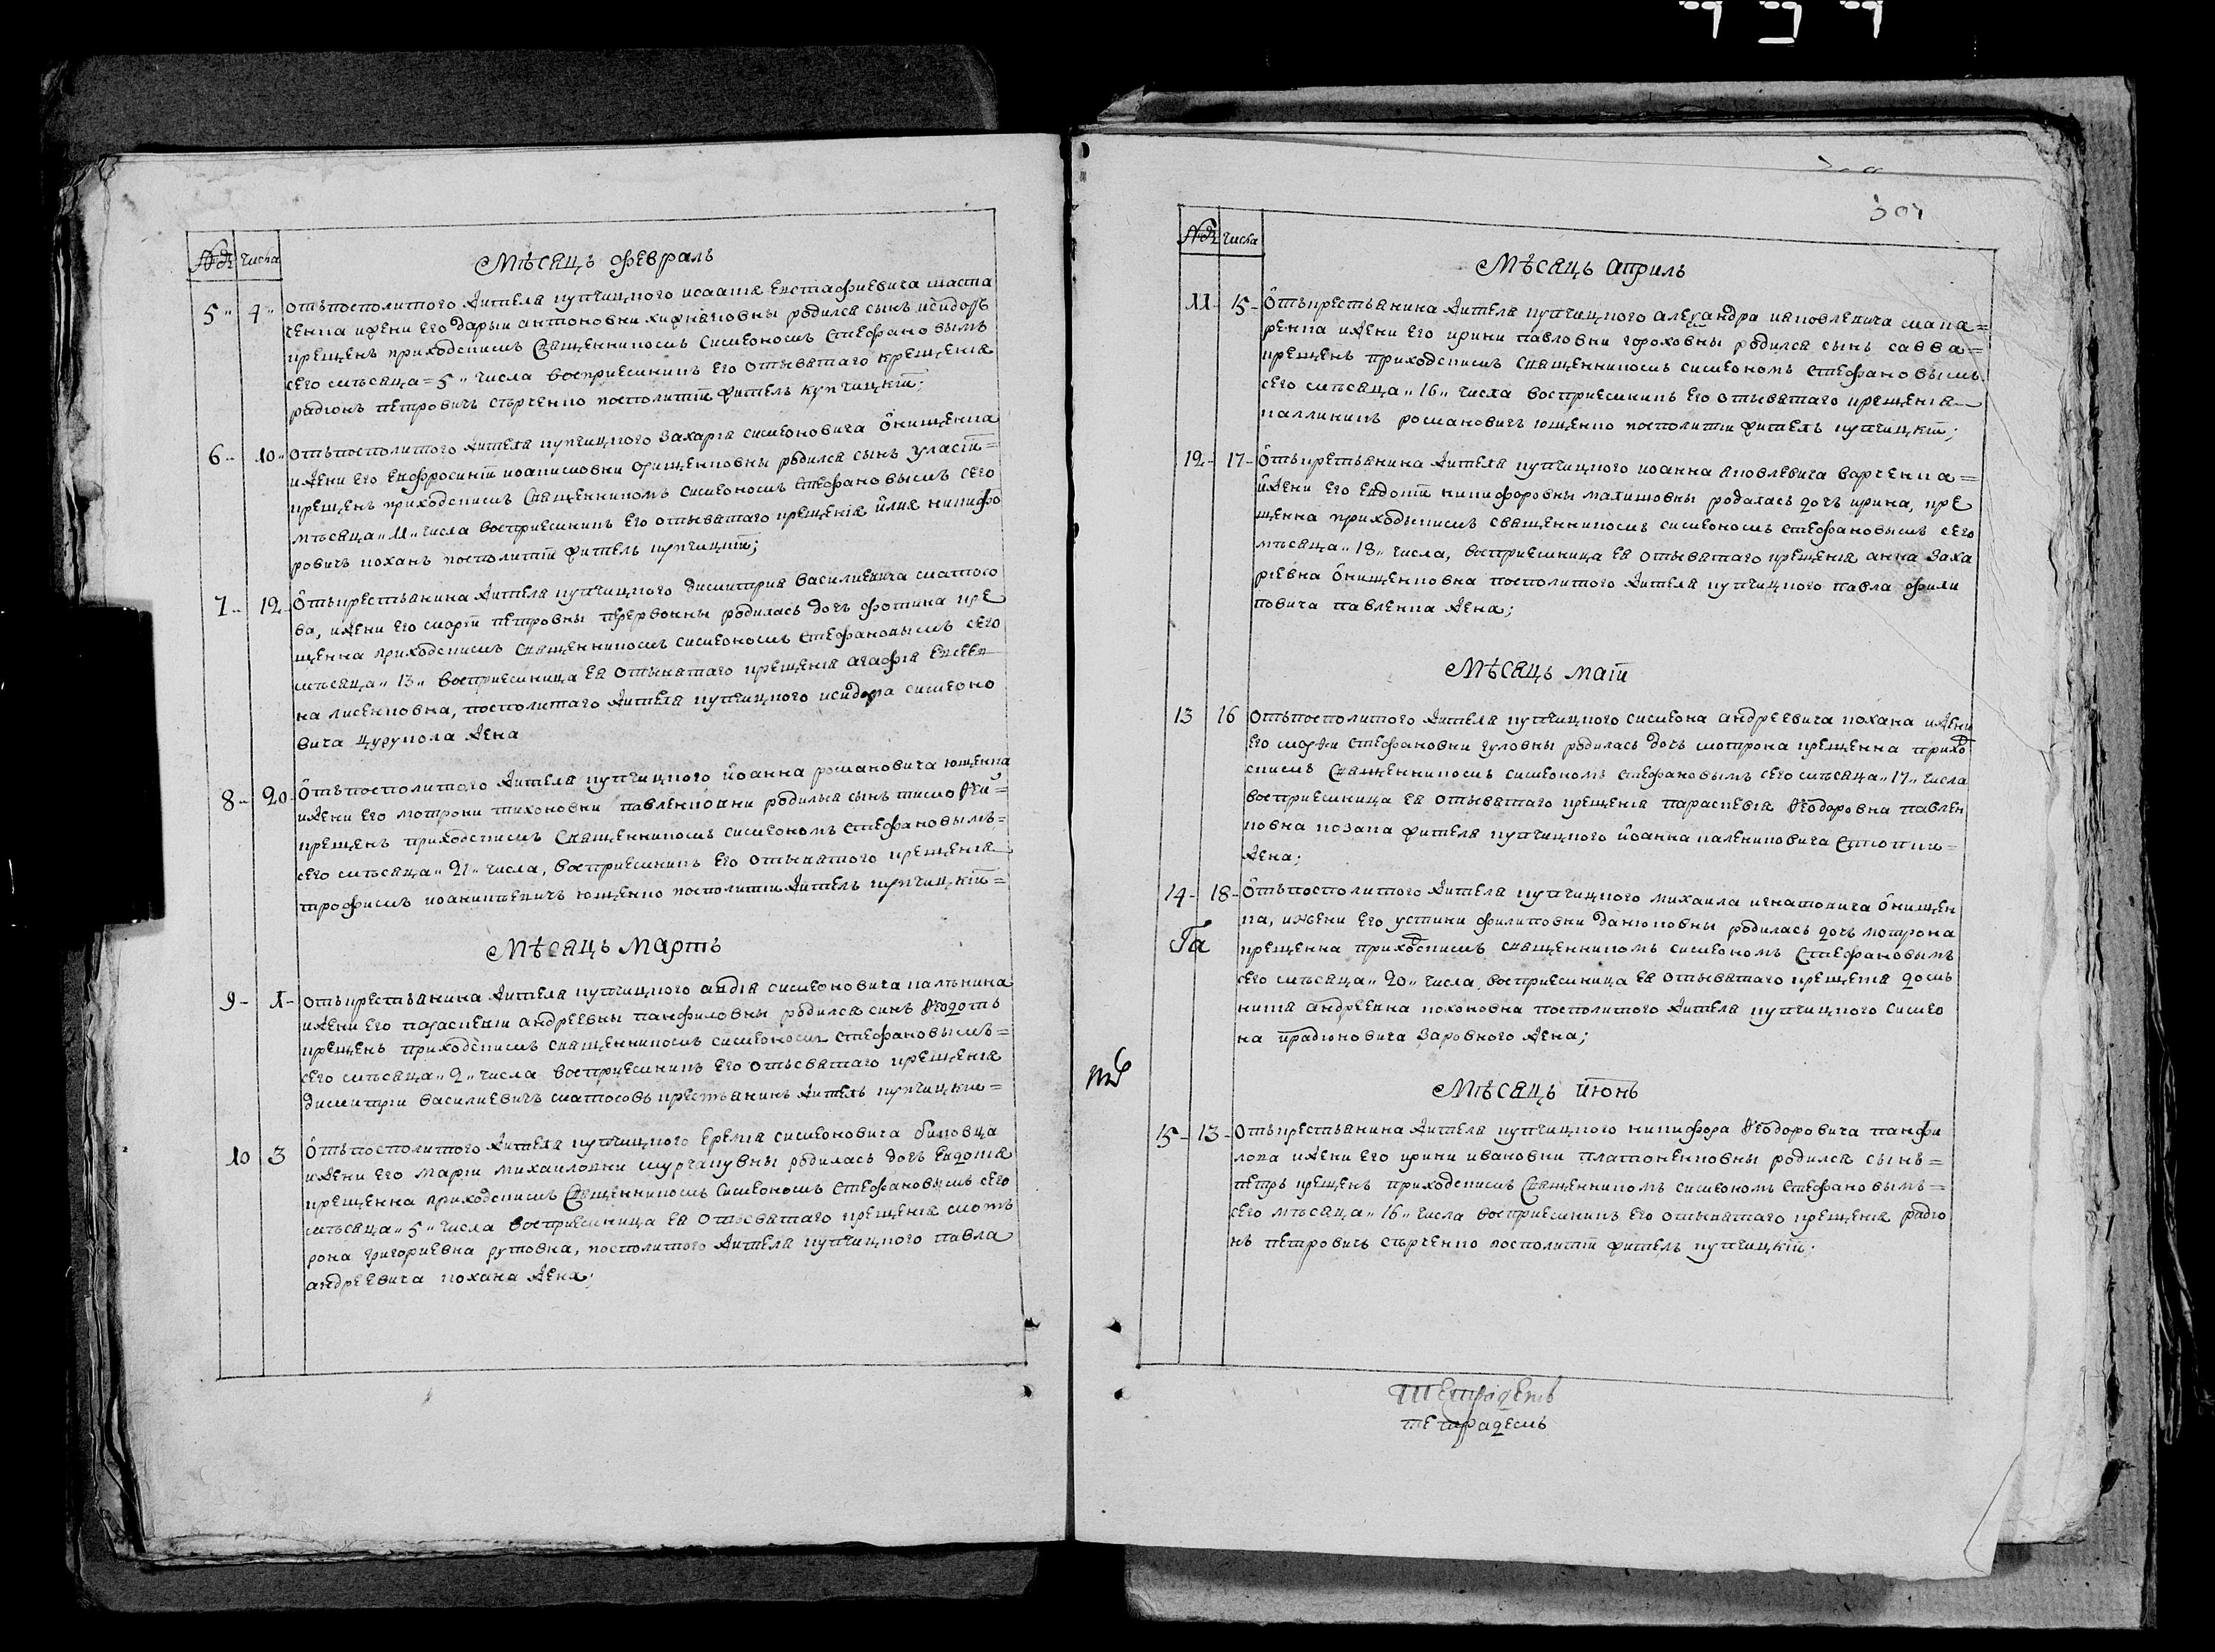 № числа
Мѣсяцъ февраль
5 4 отъ посполитого жителя купчицкого исаакія Евстафиевича шаста
ченка ижени его дарьи антоновни родился сынъ исидоръ
крещенъ приходскимъ священникомъ симеономъ стефановымъ
сего мѣсяца 5 числа восприемникъ его отъ святаго крещенія
радіонъ петровичъ сѣрченко посполитій житель купчицкій;
6 10 отъ посполитого жителя купчицкого захарія симеоновича онищенка
ижени его евфросиніи иоакимовни родился сынъ уласій
крещенъ приходскимъ священникомъ симеономъ стефановымъ сего
мѣсяца 11 числа восприемникъ его отъ святаго крещенія илия никифо
ровичъ кохань посполитій житель купчицкій;
7 12 отъ крестьянина жителя купчицкого димитрия василиевича сматосо
ва, ижени его марѳіи петровны родилась дочъ фотина кре
щенна приходскимъ священникомъ симеономъ стефановымъ сего
мѣсяца 13 восприемница ея отъ святаго крещенія агафія Евсее
на лисенковна, посполитаго жителя купчицкого исидора симеоно
вича цуркола жена
8 20 отъ посполитого жителя купчицкого иоанна романовича ющенка
ижени его мотрони тихоновни павленковни родился сынъ тимоѳей
крещенъ приходскимъ священникомъ симеономъ стефановымъ
сего мѣсяца 21 числа, восприемникъ его отъ святого крещенія
трофимъ иоанникиевичъ ющенко посполитій житель купчицкій
Мѣсяцъ мартъ
9 1 отъ крестьянина жителя купчицкого авдія симеоновича калѣнина
ижени его параскевіи андреевны панфиловны родился синъ ѳеодотъ
крещенъ приходскимъ священникомъ симеономъ стефановымъ
сего мѣсяца 2 числа восприемникъ его отъ святаго крещенія
димитрій василиевичъ сматосовъ крестьянинъ житель купчицкій
10 3 отъ посполитого жителя купчицкого еремія симеоновича биковца
ижени его маріи михаиловни шурчкувны родилась дочъ Евдокія
крещенна приходскимъ священникомъ симеономъ стефановымъ сего
мѣсяца 5 числа восприемница ея отъ святаго крещенія мот
рона григориевна рутовна, посполитого жителя купчицкого павла
андреевича кохана жена;
301
№ числа
Мѣсяцъ априль
11 15 отъ крестьянина жителя купчицкого александра иаковлевича мака
ренка ижени его ирини павловни гороховны родился сынъ савва
крещенъ приходскимъ священникомъ симеономъ стефановымъ
сего мѣсяца 16 числа восприемникъ его отъ святаго крещенія
каллиникъ романовичъ ющенко посполитій житель купчицкій;
12 17 отъ крестьянина жителя купчицкого иоанна яковлевича варченка
ижени его Евдокіи никифоровны малишовны родалась дочъ ирина, кре
щенна приходскимъ священникомъ симеономъ стефановымъ сего
мѣсяца 18 числа, восприемница ея отъ святаго крещенія анна заха
риевна онищенковна посполитого жителя купчицкого павла фили
повича павленка жена;
Мѣсяцъ маій
13 16 отъ посполитого жителя купчицкого симеона андреевича кохана ижени
его марѳи стефановни гуловны родилась дочъ мотрона крещенна прихо
скимъ священникомъ симеономъ стефановымъ сего мѣсяца 17 числа
восприемница ея отъ святаго крещенія параскевія ѳеодоровна павлен
ковна козака жителя купчицкого иоанна калениковича
жена;
14 18 отъ посполитого жителя купчицкого михаила игнатовича онищен
ка, ижени его устини филиповни данюковны родилась дочъ мотрона
крещенна приходскимъ священникомъ симеономъ стефановымъ
сего мѣсяца 20 числа, восприемница ея отъ святаго крещенія дом
никія андреевна кохановна посполитого жителя купчицкого симео
на ирадионовича заровного жена;
Мѣсяцъ июнь
15 13 отъ крестьянина жителя купчицкого никифора ѳеодоровича панфи
лова ижени его ирини ивановни платоненковны родился сынъ
петръ крещенъ приходскимъ священникомъ симеономъ стефановымъ
сего мѣсяца 16 числа восприемникъ его отъ святаго крещенія радіо
нъ петровичъ сѣрченко посполитій житель купчицкій;